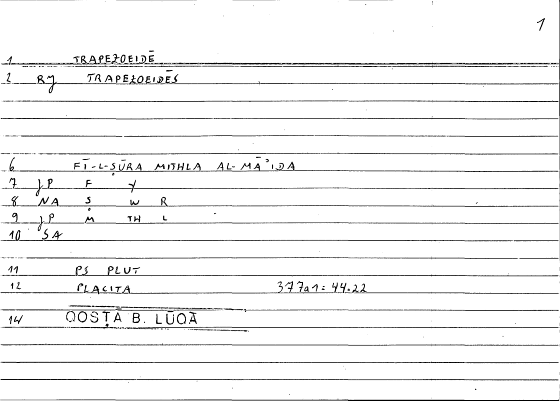 1
1 TRAPEZOEIDĒ
2 RJ TRAPEZOEIDĒS
6 FĪ-L-ṢŪRA MITHLA AL-MĀʾIDA
7 JP F Y
8 NA Ṣ W R
9 JP M TH L
10 SA
11 PS PLUT
12 PLACITA 377a1: 44.22
14 QOSṬĀ B. LŪQĀ